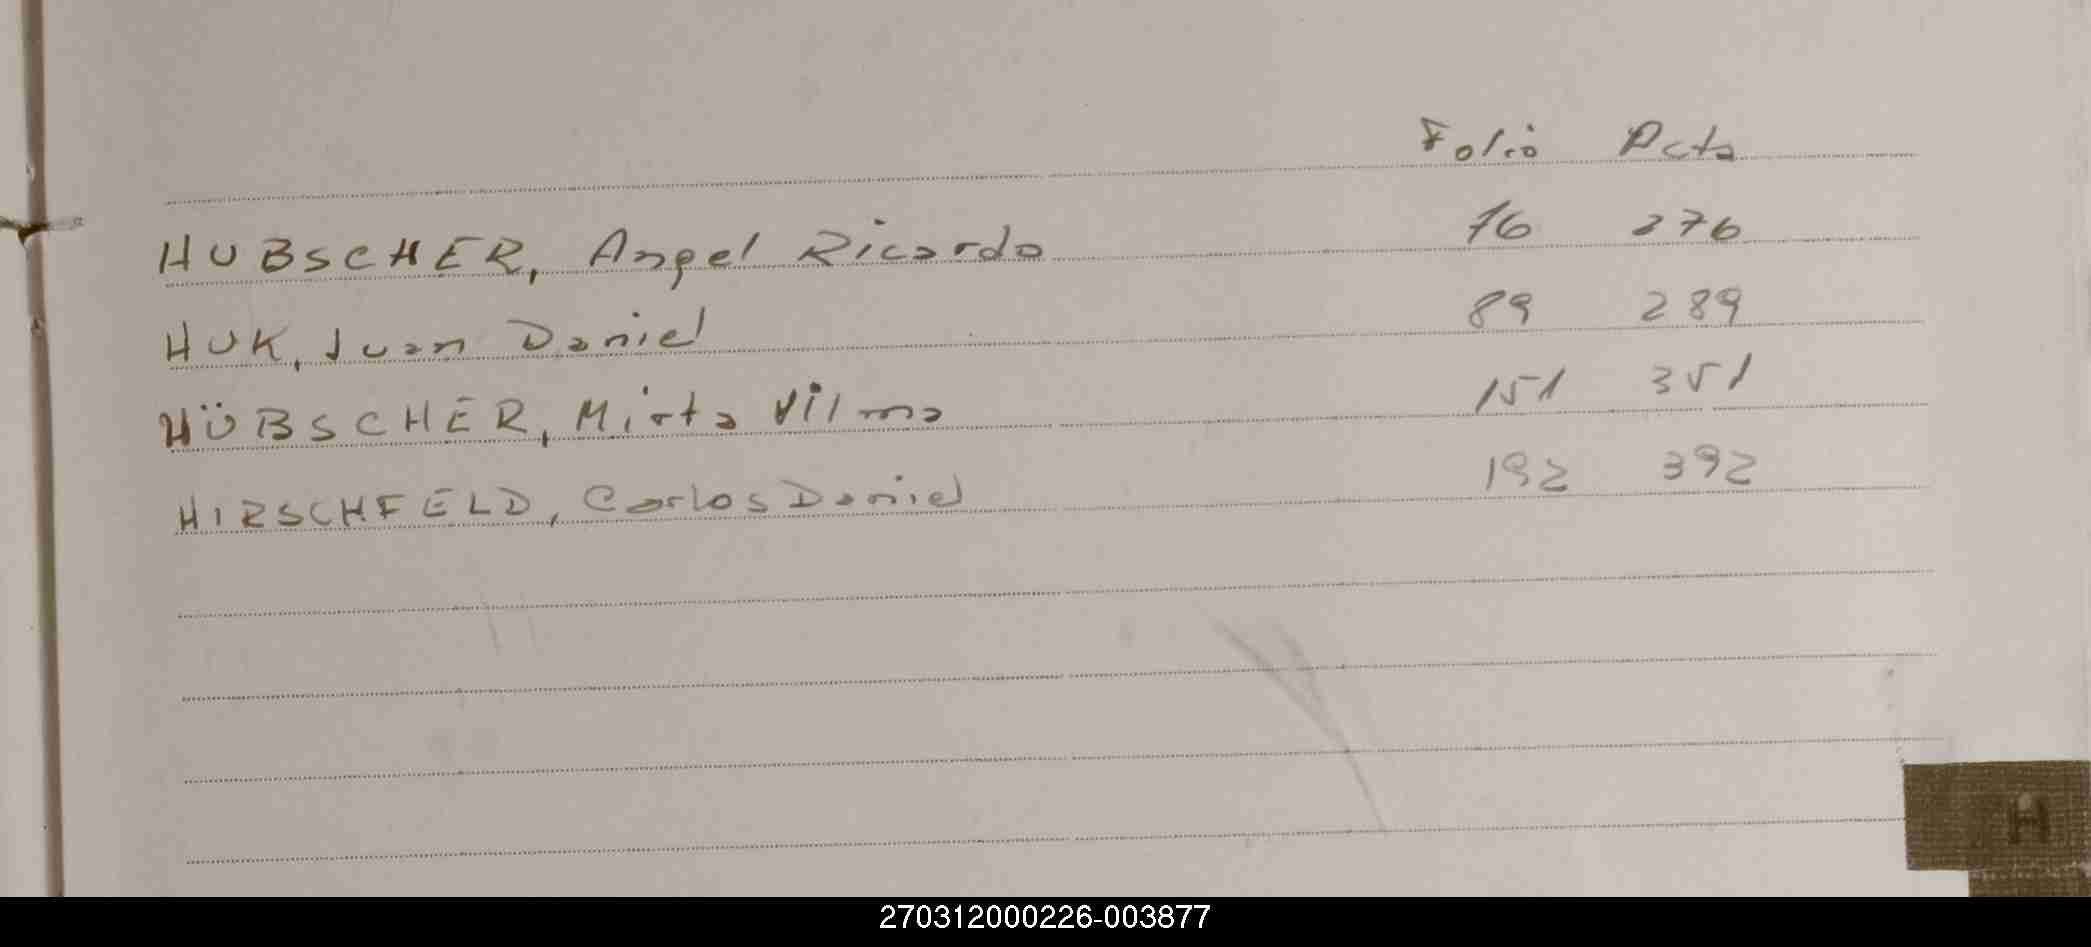 Folio Acta
HUBSCHER, Angel Ricardo 76 276
HUK, Juan Daniel 89 289
HÜBSCHER, Mirta Vilma 151 351
HIRSCHFELD, Carlos Daniel 192 392
H
270312000226-003877